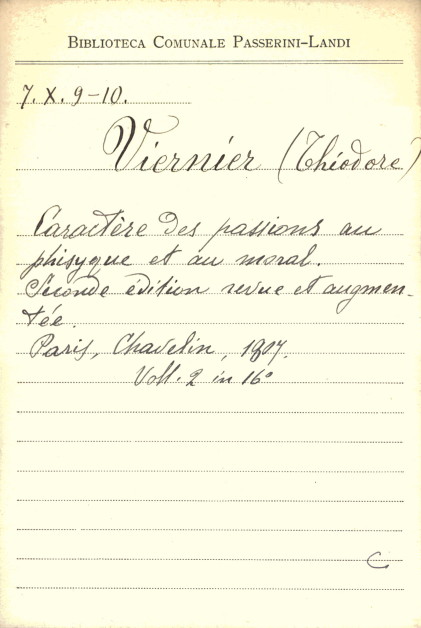 BIBLIOTECA COMUNALE PASSERINI-LANDI
7. X. 9-10.
Viernier (Théodore)
Caractère des passions au
phisyque et au moral.
Seconde édition revue et augmen-
tée.
Paris, Chavelin, 1807.
Voll. 2 in 16°
C